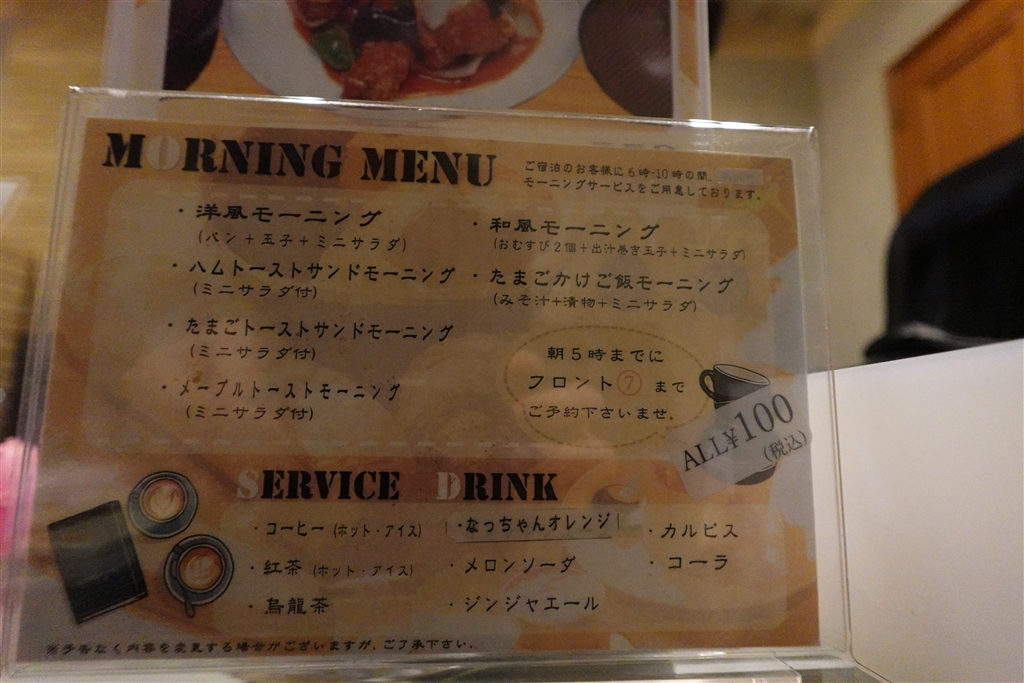 MORNING MENU
ご宿泊のお客様に6時-10時の間、
モーニングサービスをご用意しております。
・洋風モーニング
(パン+玉子+ミニサラダ)
・ハムトーストサンドモーニング
(ミニサラダ付)
・たまごトーストサンドモーニング
(ミニサラダ付)
・メープルトーストモーニング
(ミニサラダ付)
・和風モーニング
(おむすび2個+出汁巻き玉子+ミニサラダ)
・たまごかけご飯モーニング
(みそ汁+漬物+ミニサラダ)
朝5時までに
フロント⑦まで
ご予約下さいませ。
ALL¥100
(税込)
SERVICE DRINK
・コーヒー(ホット・アイス)
・紅茶(ホット・アイス)
・烏龍茶
・なっちゃんオレンジ
・メロンソーダ
・ジンジャエール
・カルピス
・コーラ
※予告なく内容を変更する場合がございますが、ご了承下さい。